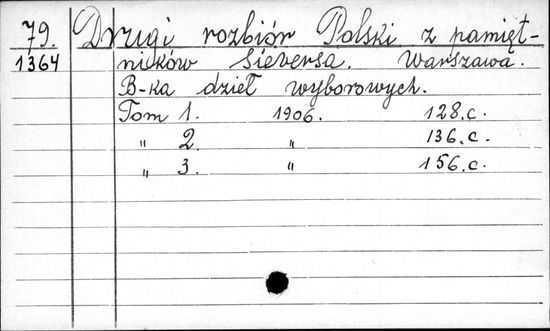 79. Drugi rozbiór Polski z pamięt-
1364 ników Sieversa. Warszawa.
B-ka dzieł wyborowych.
Tom 1. 1906. 128.c.
„ 2. „ 136.c.
„ 3. „ 156.c.